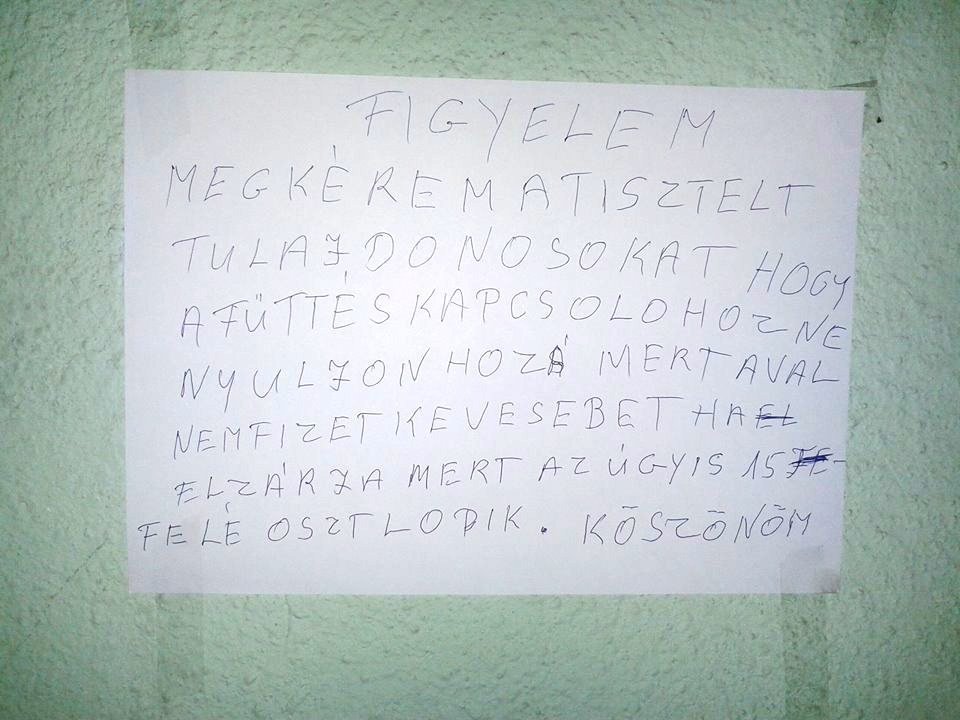 FIGYELEM
MEGKÉREM A TISZTELT
TULAJDONOSOKAT HOGY
A FŰTTÉS KAPCSOLOHOZ NE
NYULJON HOZÁ MERT AVAL
NEMFIZET KEVESEBET HA EL
ELZÁRJA MERT AZ ÚGYIS 15 FE-
FELÉ OSZTLODIK. KÖSZÖNÖM